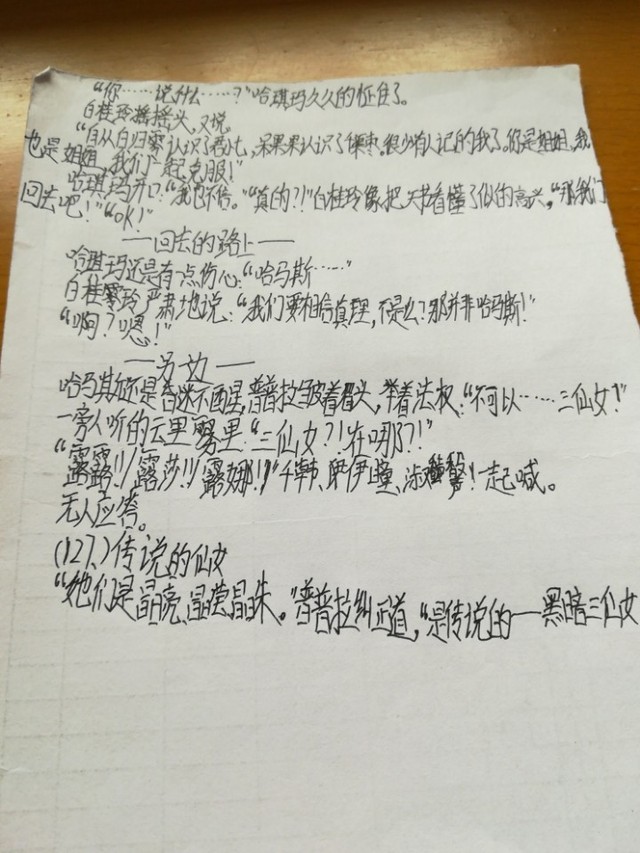 “你……说什么……?”哈琪玛久久的怔住了。
白桂玲摇摇头,又说。
“自从白归雾认识了君七,呆果果认识了保枣。很少有人记的我了。你是姐姐,我
也是姐姐,我们一起克服!”
哈琪玛开口:“我也不信。”“真的?!”白桂玲像把天书看懂了似的高兴,“那我们
回去吧!”“OK!”
——回去的路上——
哈琪玛还是有一点伤心:“哈马斯……”
白桂雾玲严肃地说:“我们要相信真理,不是么?那并非哈马斯!”
“啊?嗯!”
——另一边——
哈马斯还是昏迷不醒,普普拉皱着眉头,举着法权:“不可以……三仙女!”
一旁人听的云里雾里:“三仙女?!在哪?!”
“露露!!/露莎!!/露娜!!”千韩、伊瞳、淑馨!一起喊。
无人应答。
(127.)传说的仙女
“她们是晶亮、晶莹、晶珠。”普普拉纠正道,“是传说的——黑暗三仙女